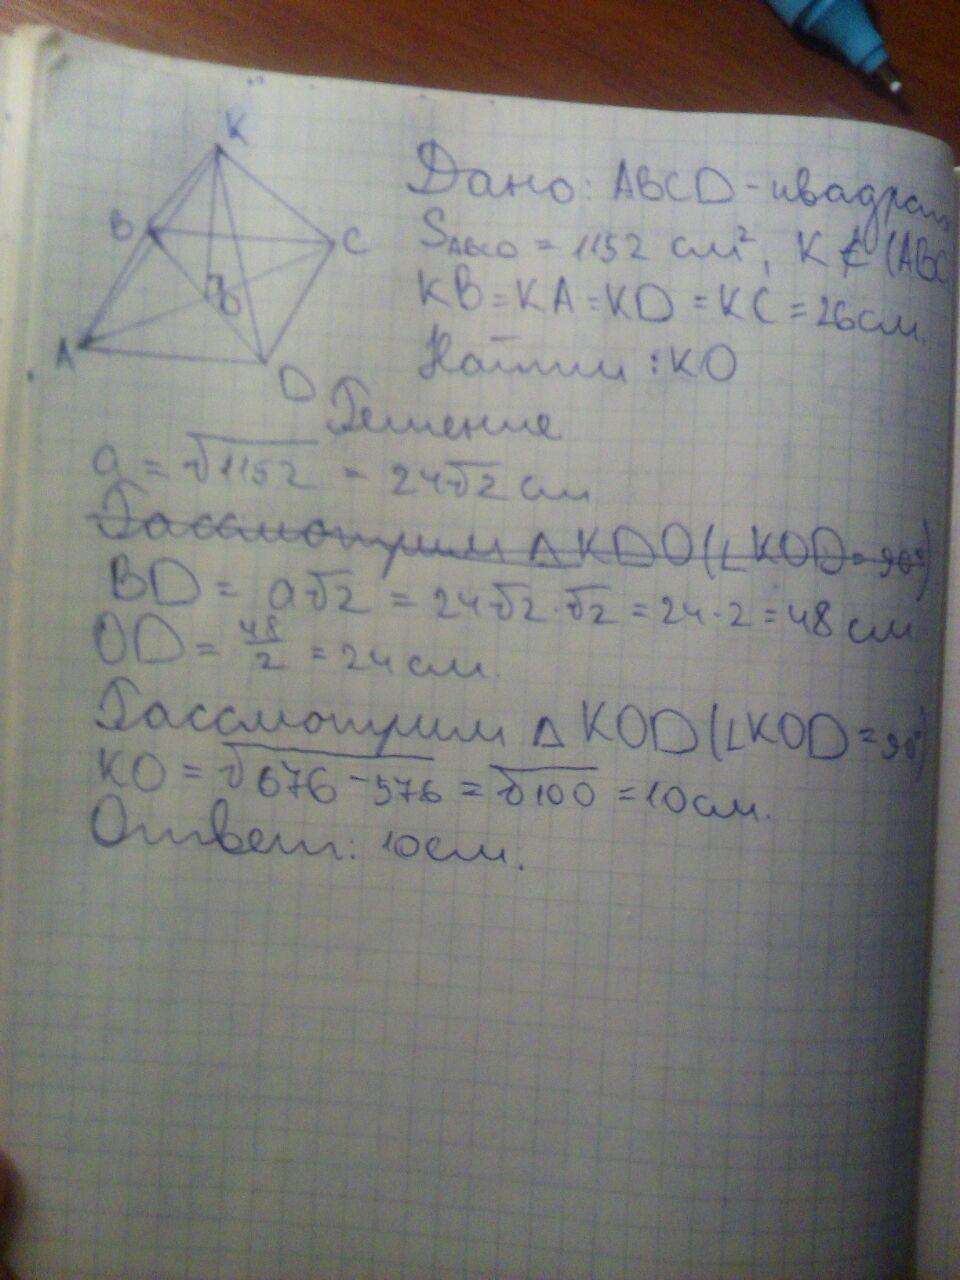 K
B
C
A
D
Дано: ABCD - квадрат,
S ABCD = 1152 см², K ∉ (ABC
KB = KA = KD = KC = 26 см.
Найти: KO
Решение
a = √1152 = 24√2 см
Рассмотрим △ KDO (∠KOD = 90°)
BD = a√2 = 24√2 · √2 = 24 · 2 = 48 см
OD = 48/2 = 24 см.
Рассмотрим △ KOD (∠KOD = 90°)
KO = √676 - 576 = √100 = 10 см.
Ответ: 10 см.